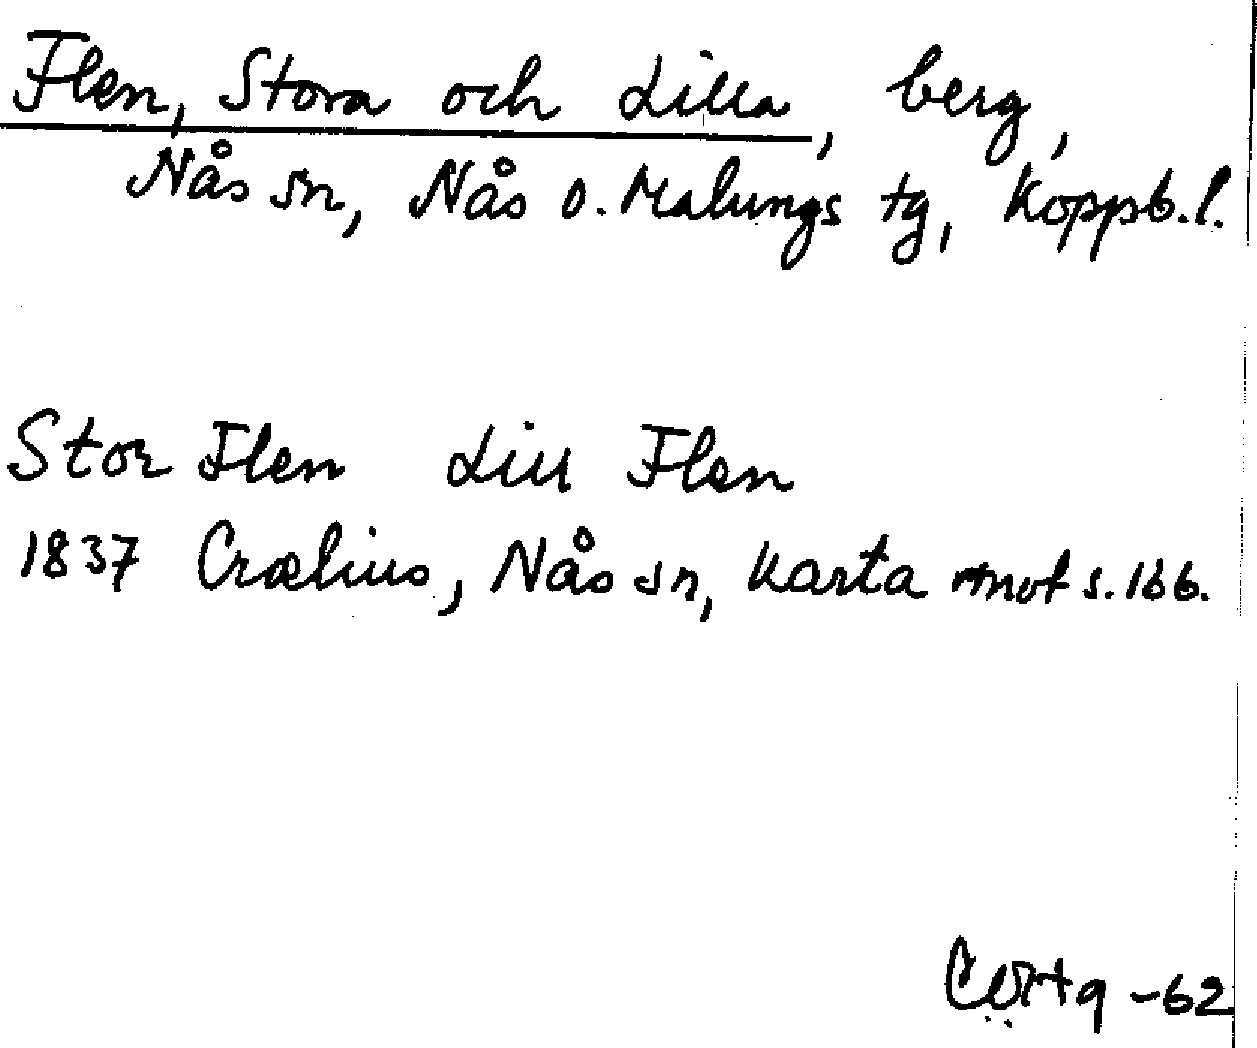 Flen, Stora och Lilla, berg,
Nås sn, Nås o. Malungs tg, Koppb. l.
Stor Flen Lill Flen
1837 Crælius, Nås sn, Karta mot s. 166.
-62